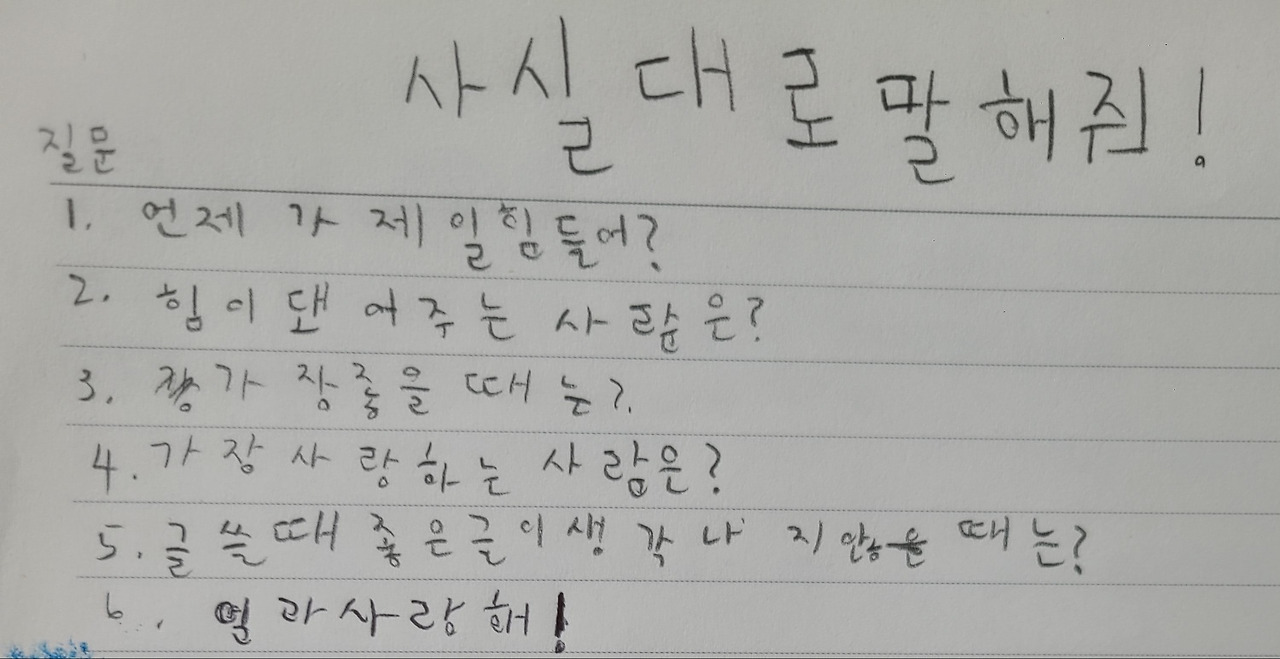 사실대로말해줘!
질문
1. 언제가제일힘들어?
2. 힘이돼어주는사람은?
3. 가장좋을때는?
4. 가장사랑하는사람은?
5. 글쓸때좋은글이생각나지않을때는?
6. 사랑해!